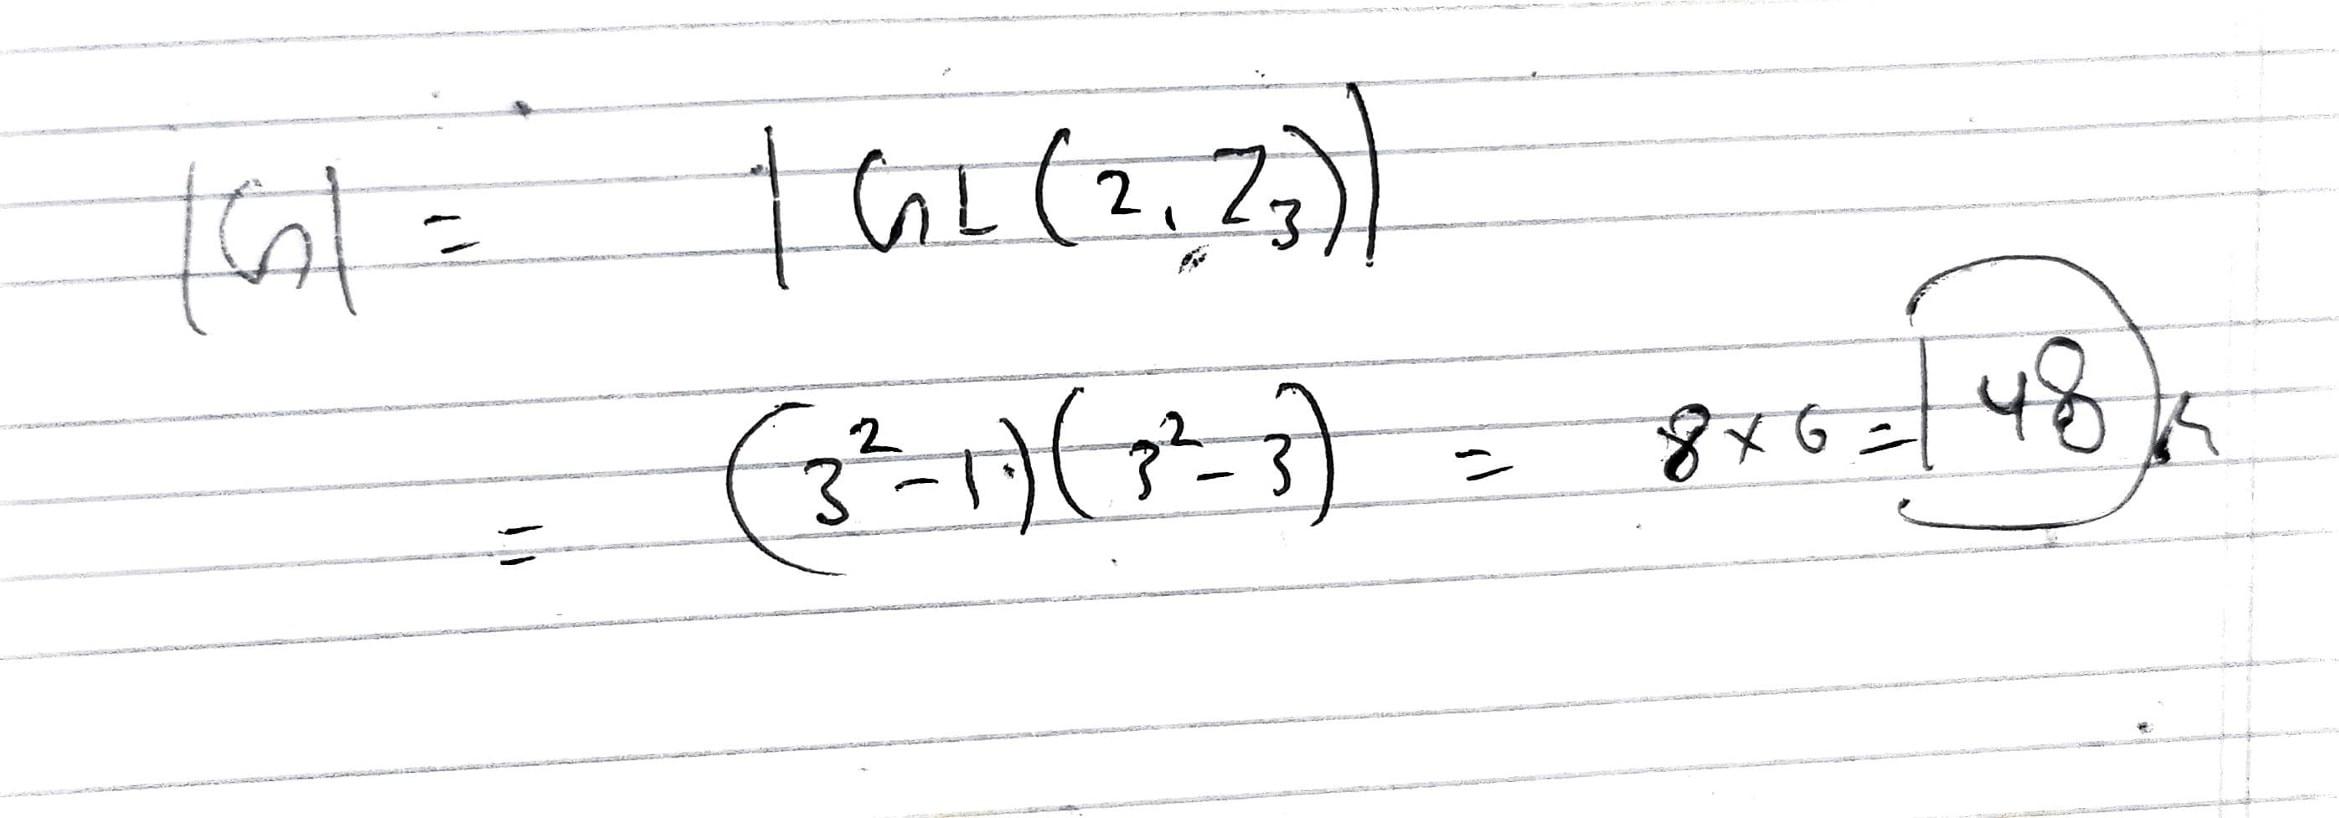 |G| = |GL(2, Z₃)|
= (3² - 1)(3² - 3) = 8 × 6 = 48